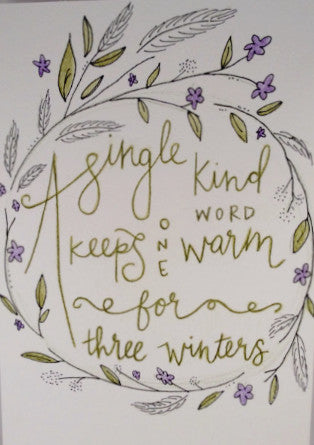 A single kind
word
keeps one warm
for
three winters